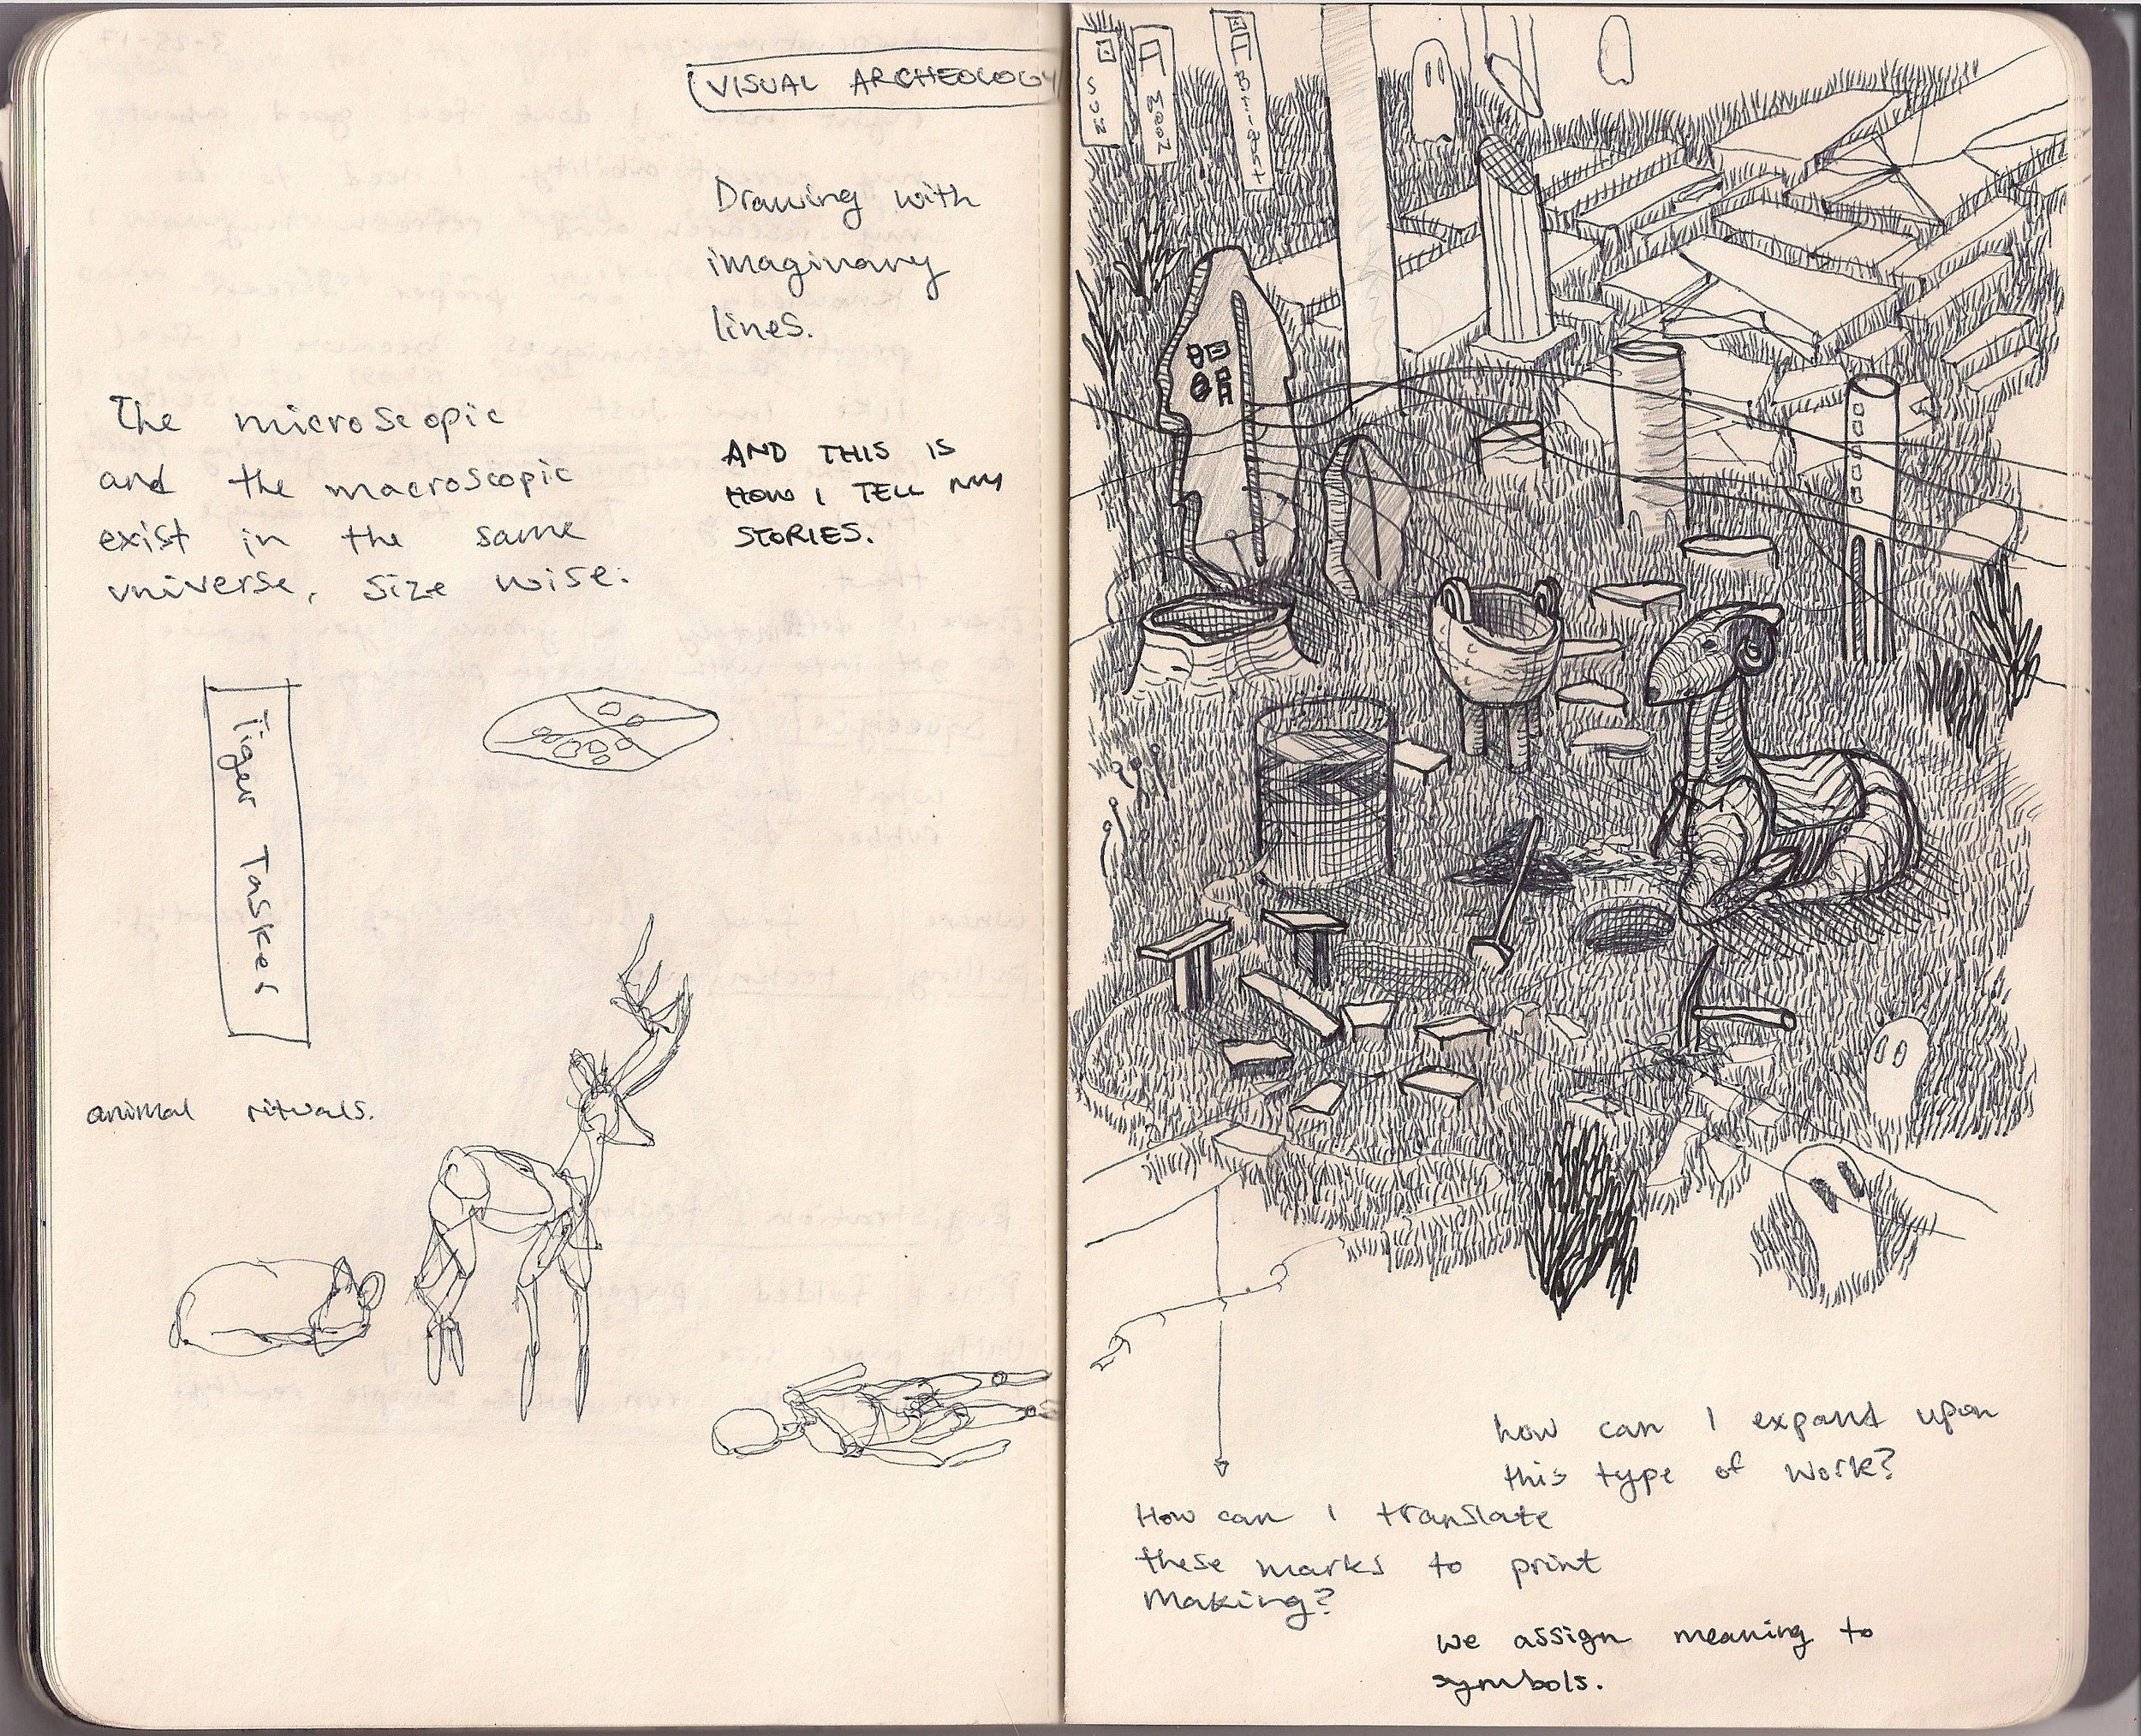 VISUAL ARCHEOLOGY
Drawing with
imaginary
lines.
The microscopic
and the macroscopic
exist in the same
universe, size wise.
AND THIS IS
HOW I TELL MY
STORIES.
Tiger Tasker
animal rituals.
Sun
Moon
Bright
how can I expand upon
this type of work?
How can I translate
these marks to print
making?
we assign meaning to
symbols.